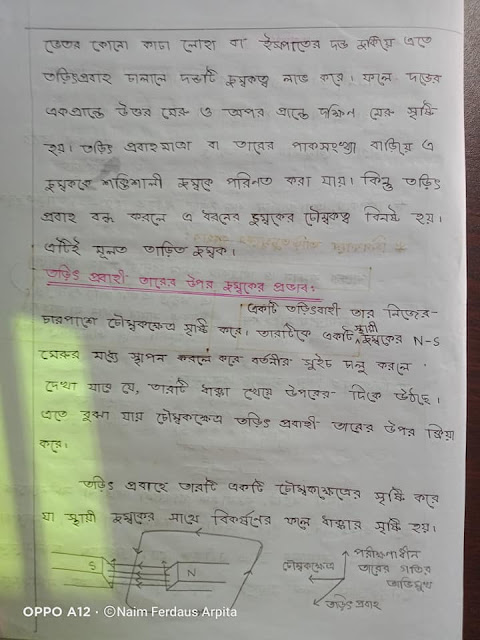 ভেতর কোনো কাচা লোহা বা ইস্পাতের দন্ড ঢুকিয়ে এতে
তড়িৎপ্রবাহ চালালে দন্ডটি চুম্বকত্ব লাভ করে। ফলে দন্ডের
একপ্রান্তে উত্তর মেরু ও অপর প্রান্তে দক্ষিন মেরু সৃষ্টি
হয়। তড়িৎ প্রবাহমাত্রা বা তারের পাকসংখ্যা বাড়িয়ে এ
চুম্বককে শক্তিশালী চুম্বকে পরিনত করা যায়। কিন্তু তড়িৎ
প্রবাহ বন্ধ করলে এ ধরনের চুম্বকের চৌম্বকত্ব বিনষ্ট হয়।
এটিই মূলত তাড়িত চুম্বক।
তড়িৎ প্রবাহী তারের উপর চুম্বকের প্রভাব:
একটি তড়িৎবাহী তার নিজের
চারপাশে চৌম্বকক্ষেত্র সৃষ্টি করে। তারটিকে একটি স্থায়ী চুম্বকের N-S
মেরুর মধ্যে স্থাপন করলে করে বর্তনীর সুইচ চালু করলে
দেখা যাবে যে, তারটি ধাক্কা খেয়ে উপরের দিকে উঠছে।
এতে বুঝা যায় চৌম্বকক্ষেত্র তড়িৎ প্রবাহী তারের উপর ক্রিয়া
করে।
তড়িৎ প্রবাহে তারটি একটি চৌম্বকক্ষেত্রের সৃষ্টি করে
যা স্থায়ী চুম্বকের সাথে বিকর্ষনের ফলে ধাক্কার সৃষ্টি হয়।
S N
চৌম্বকক্ষেত্র
পরীক্ষাধীন
তারের গতির
অভিমুখ
তড়িৎ প্রবাহ
OPPO A12 · ©Naim Ferdaus Arpita